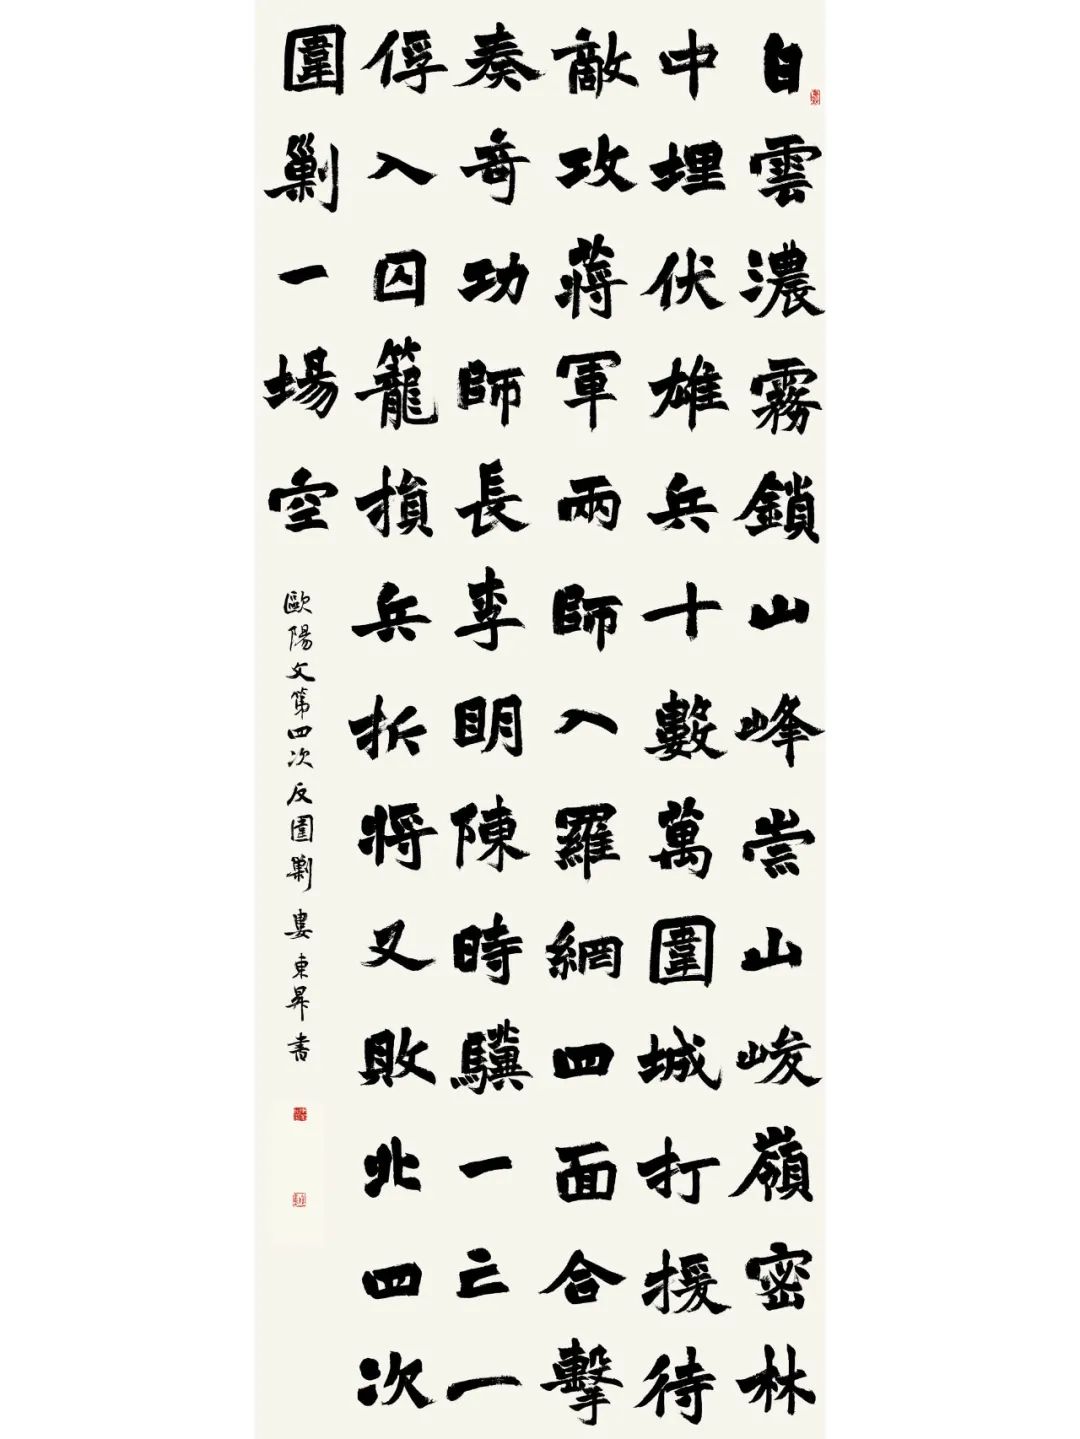 白雲濃霧鎖山峰崇山峻嶺密林
中埋伏雄兵十數萬圍城打援待
敵攻蔣軍兩師入羅網四面合擊
奏奇功師長李明陳時驥一亡一
俘入囚籠損兵折將又敗北四次
圍剿一場空
歐陽文第四次反圍剿 婁東昇書